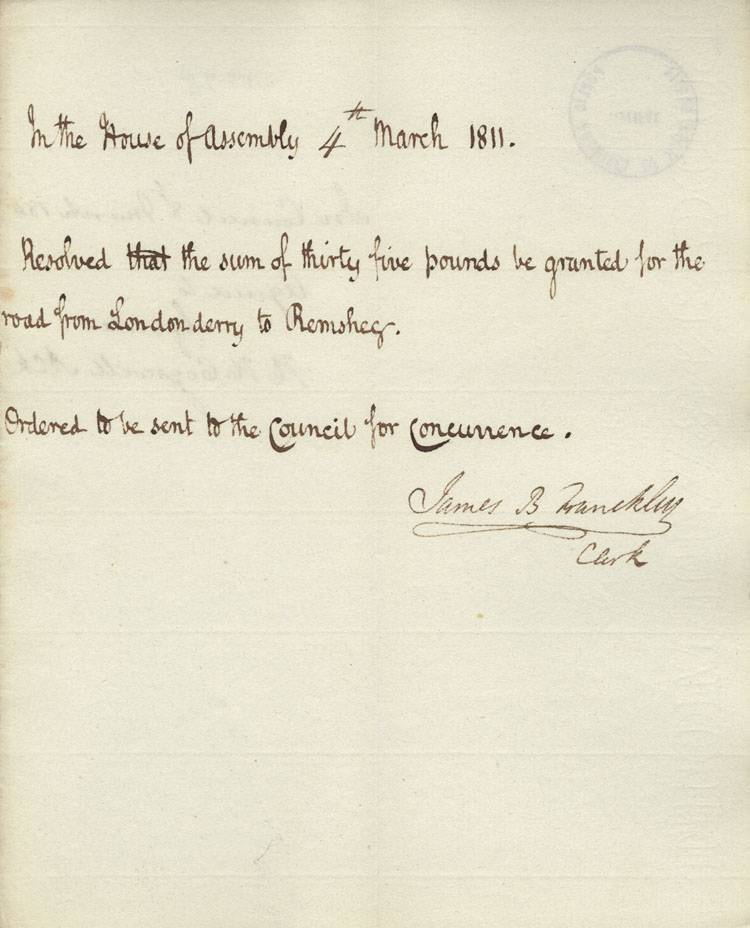 In the House of Assembly 4th March 1811.
Resolved that the sum of thirty five pounds be granted for the
road from Londonderry to Remsheg.
Ordered to be sent to the Council for Concurrence.
James B Franckly
Clerk